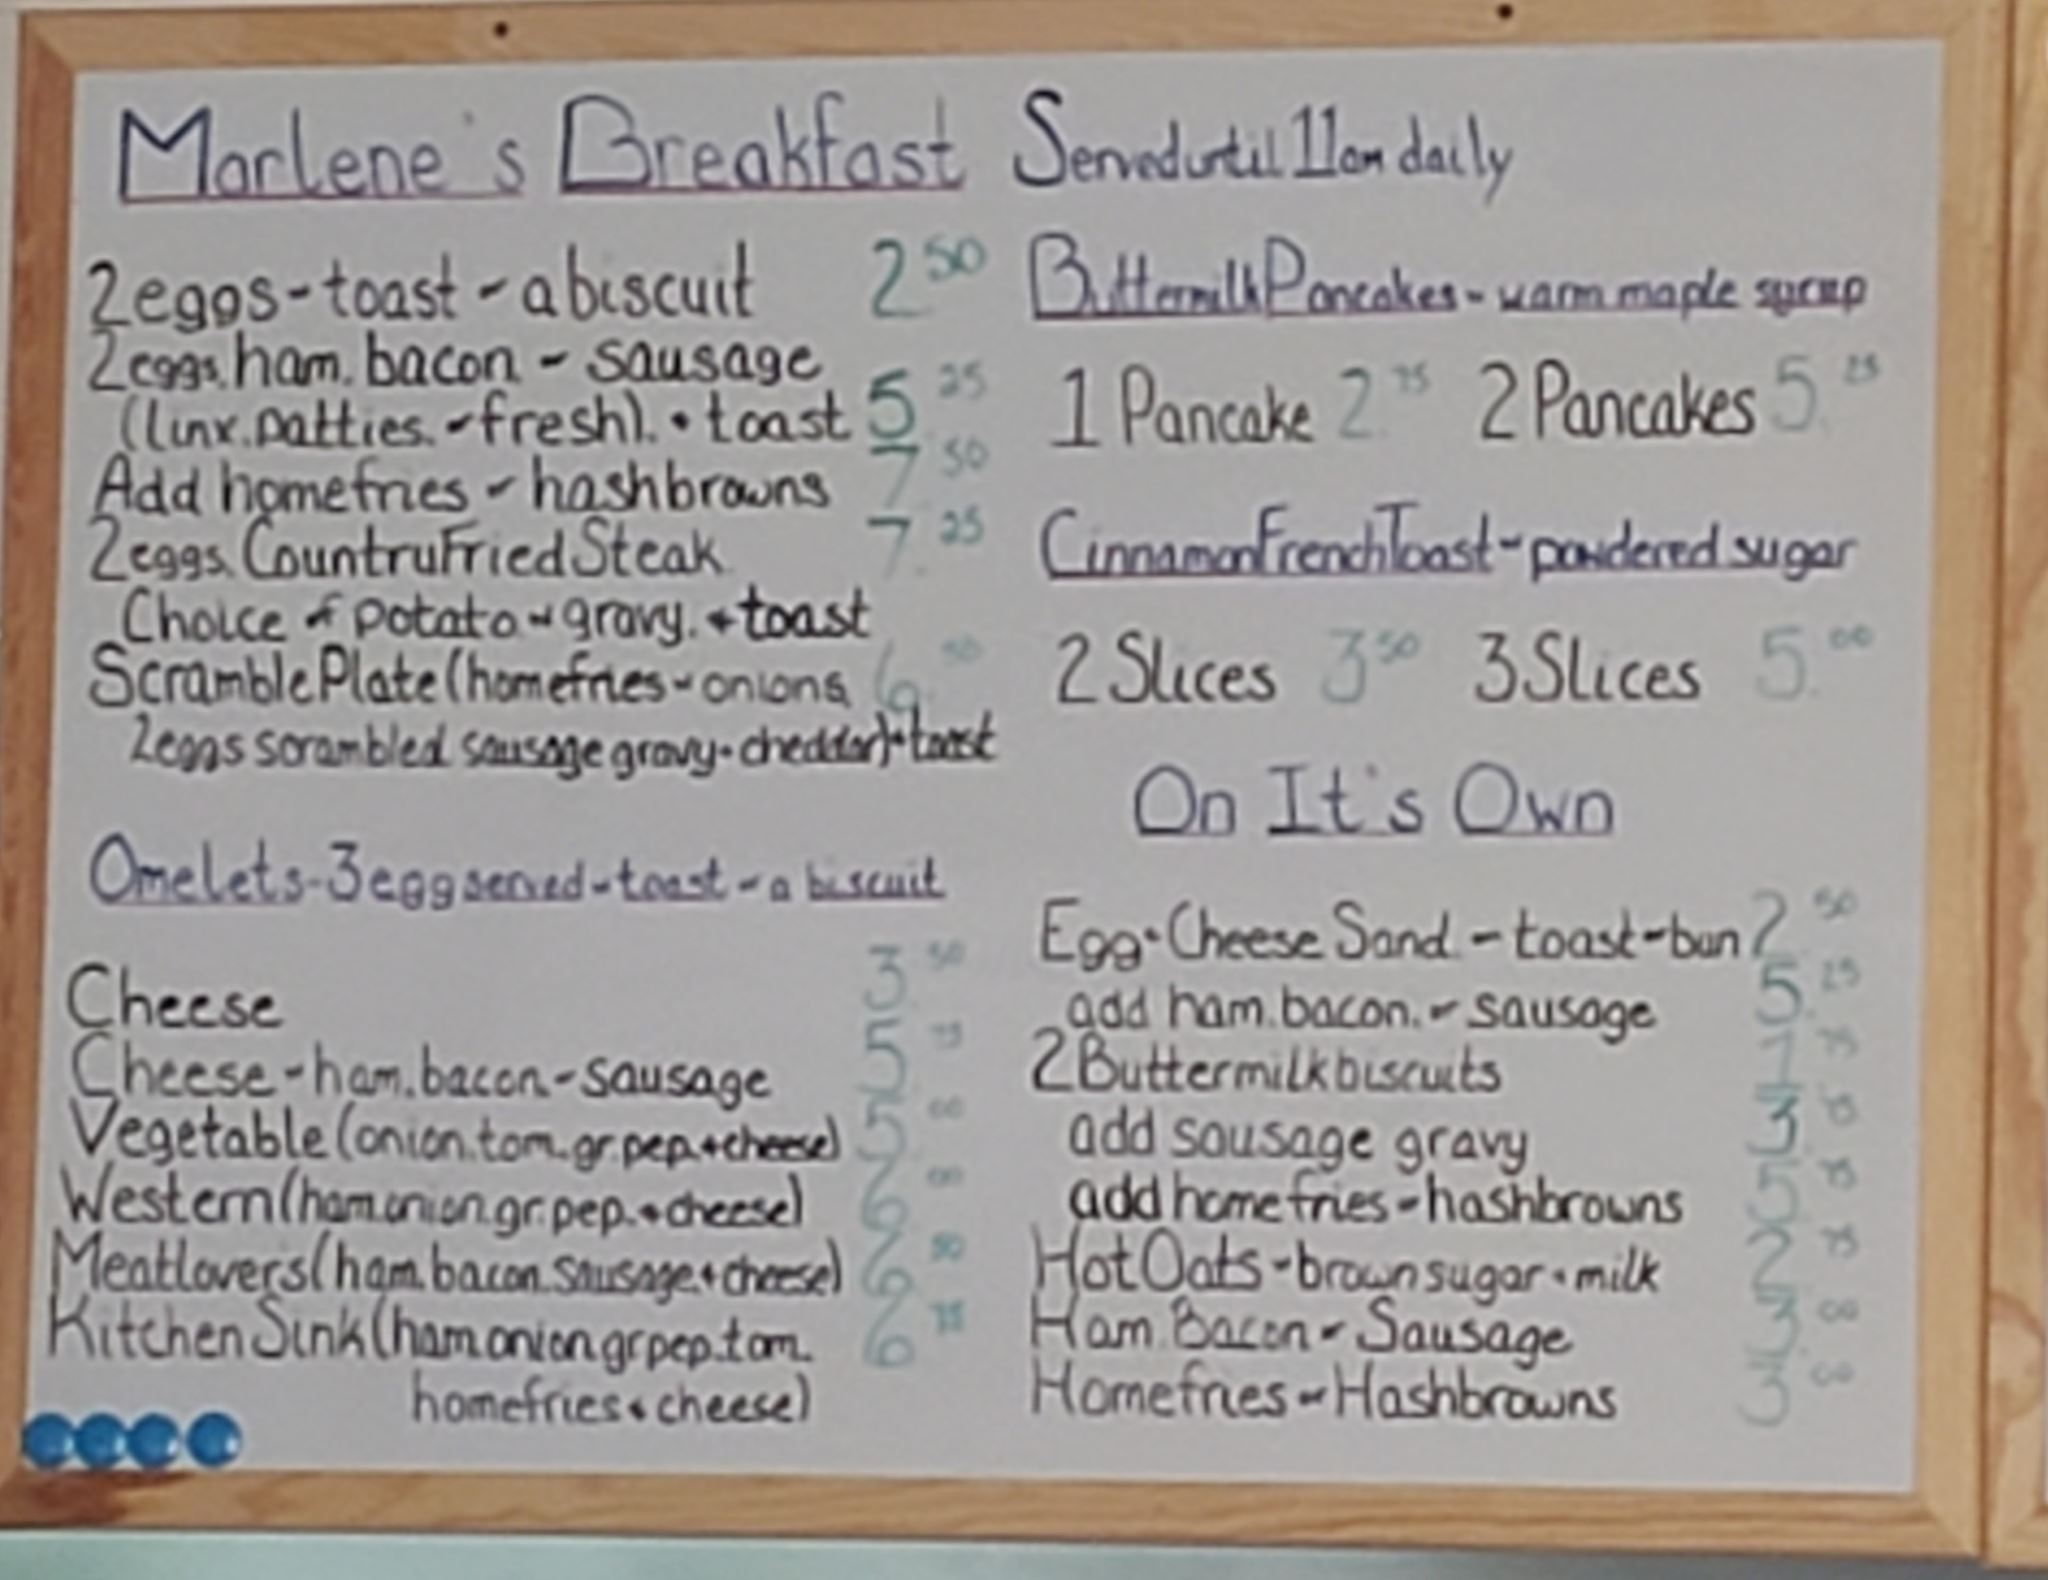 Marlene's Breakfast Served until 11am daily
2 eggs - toast - a biscuit 2.50
2 eggs. ham. bacon - sausage
(linx. patties. - fresh). + toast 5.25
Add homefries - hashbrowns 7.50
2 eggs. Country Fried Steak 7.25
Choice of potato - gravy. + toast
Scramble Plate (homefries - onions, 6.50
2 eggs scrambled sausage gravy + cheddar) + toast
Omelets - 3 egg served - toast - a biscuit
Cheese 3.50
Cheese - ham. bacon - sausage 5
Vegetable (onion. tom. gr. pep. + cheese) 5.00
Western (ham. onion. gr. pep. + cheese) 6.00
Meatlovers (ham. bacon. sausage + cheese) 6.50
Kitchen Sink (ham onion gr pep. tom. 6.75
homefries + cheese)
Buttermilk Pancakes - warm maple syrup
1 Pancake 2.75 2 Pancakes 5.25
Cinnamon French Toast - powdered sugar
2 Slices 3.50 3 Slices 5.00
On It's Own
Egg + Cheese Sand. - toast - bun 2.50
add ham. bacon. - sausage 5.25
2 Buttermilk biscuits 1.75
add sausage gravy 3
add homefries - hashbrowns 5
Hot Oats - brown sugar + milk 2.75
Ham. Bacon - Sausage 3.00
Homefries - Hashbrowns 3